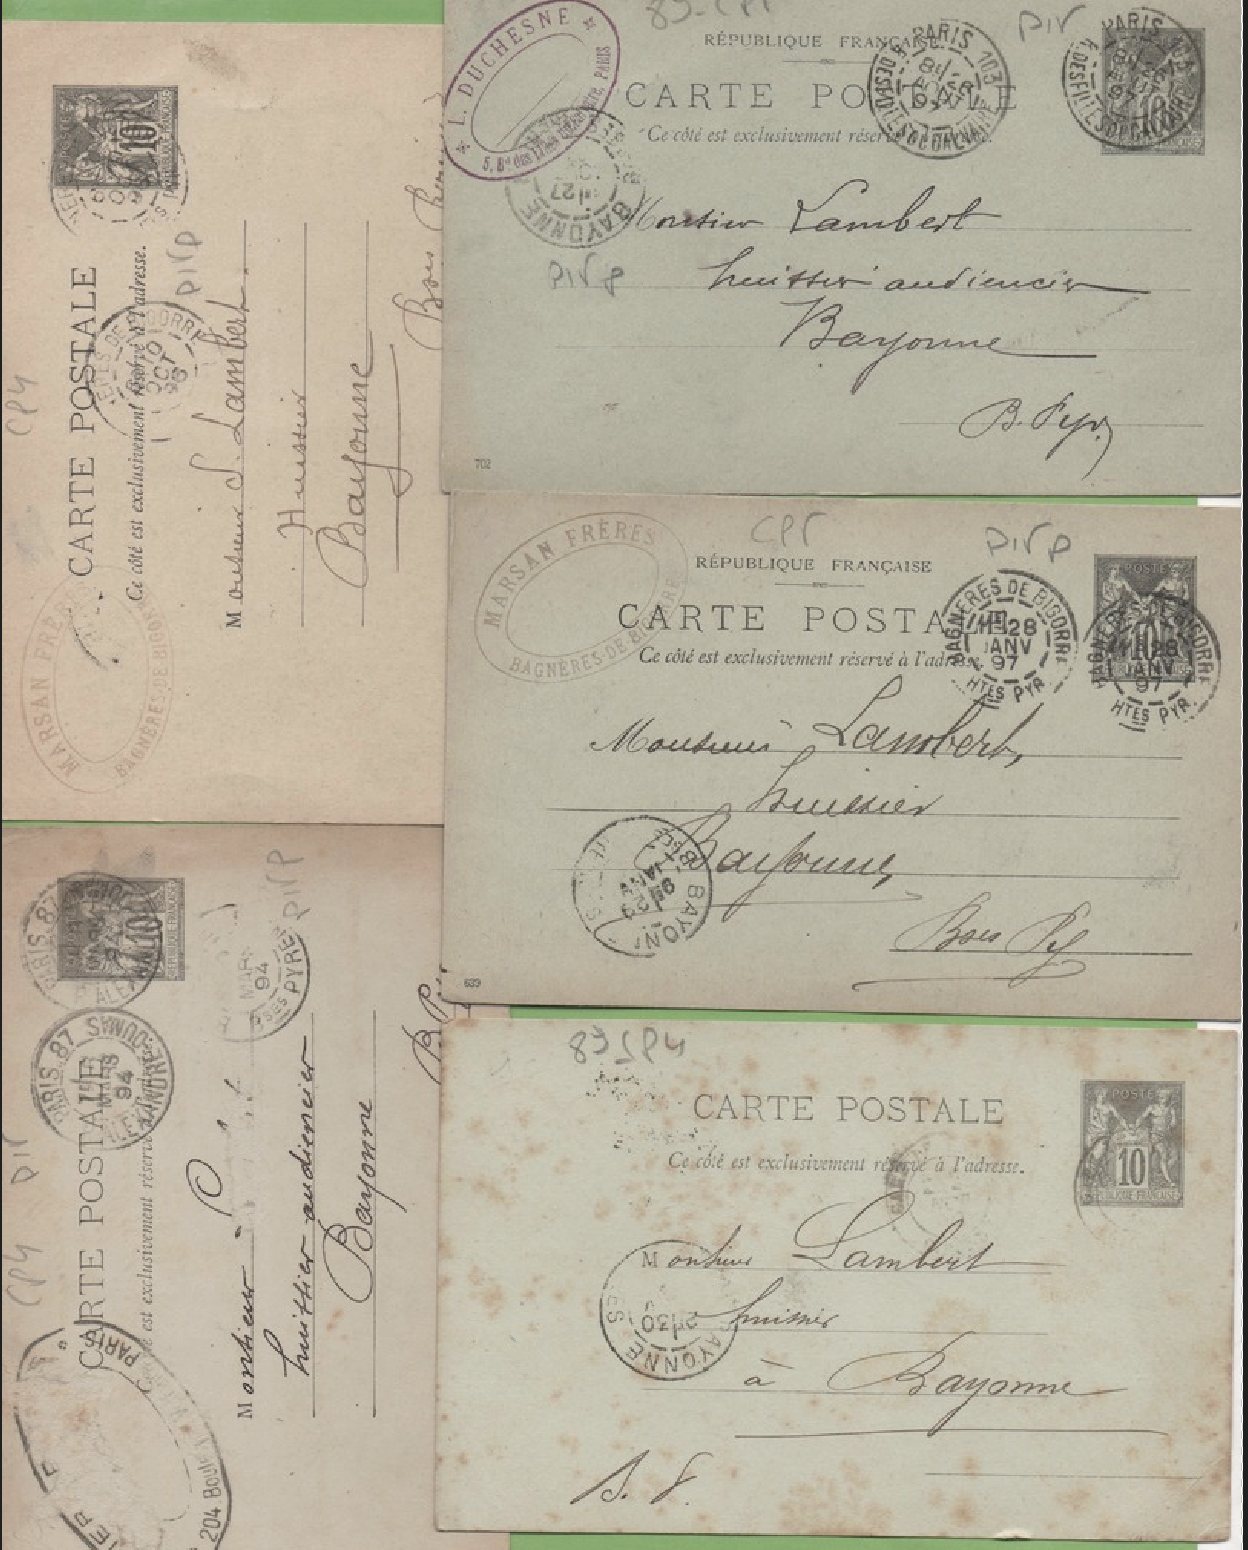 10
CARTE POSTALE
Ce côté est exclusivement réservé à l'adresse.
Monsieur S. Lambert
Huissier
Bayonne
CP4
PIVP
OCT
MARSAN FRÈRES
BAGNÈRES-DE-BIGORRE
83-CP5
PIV
L. DUCHESNE
RÉPUBLIQUE FRANÇAISE
CARTE POSTALE
Ce côté est exclusivement réservé
PARIS 103
R. DES FILLES DU CALVAIRE
PARIS 103
R. DES FILLES DU CALVAIRE
BAYONNE
27
Monsieur Lambert
huissier audiencier
Bayonne
B. Pyr.
PIVP
702
CP5
PIVP
MARSAN FRÈRES
BAGNÈRES-DE-BIGORRE
RÉPUBLIQUE FRANÇAISE
CARTE POSTALE
Ce côté est exclusivement réservé à l'adresse.
POSTE
BAGNÈRES DE BIGORRE
28
JANV
97
HTES PYR.
BAGNÈRES DE BIGORRE
28
JANV
97
HTES PYR.
Monsieur Lambert,
huissier
Bayonne,
Bses Py
BAYONNE
29
JANV
639
10
PARIS 87
PARIS 87
ALEXANDRE DUMAS
MARS
94
MARS
94
PYRENEES
PIVP
CARTE POSTALE
Ce côté est exclusivement réservé à l'adresse
Monsieur
huissier audiencier
Bayonne
CP4 PIV
PARIS
204 Boul
83 CP4
CARTE POSTALE
Ce côté est exclusivement réservé à l'adresse.
POSTE
10
RÉPUBLIQUE FRANÇAISE
Monsieur Lambert
huissier
à Bayonne
B. P.
BAYONNE
30